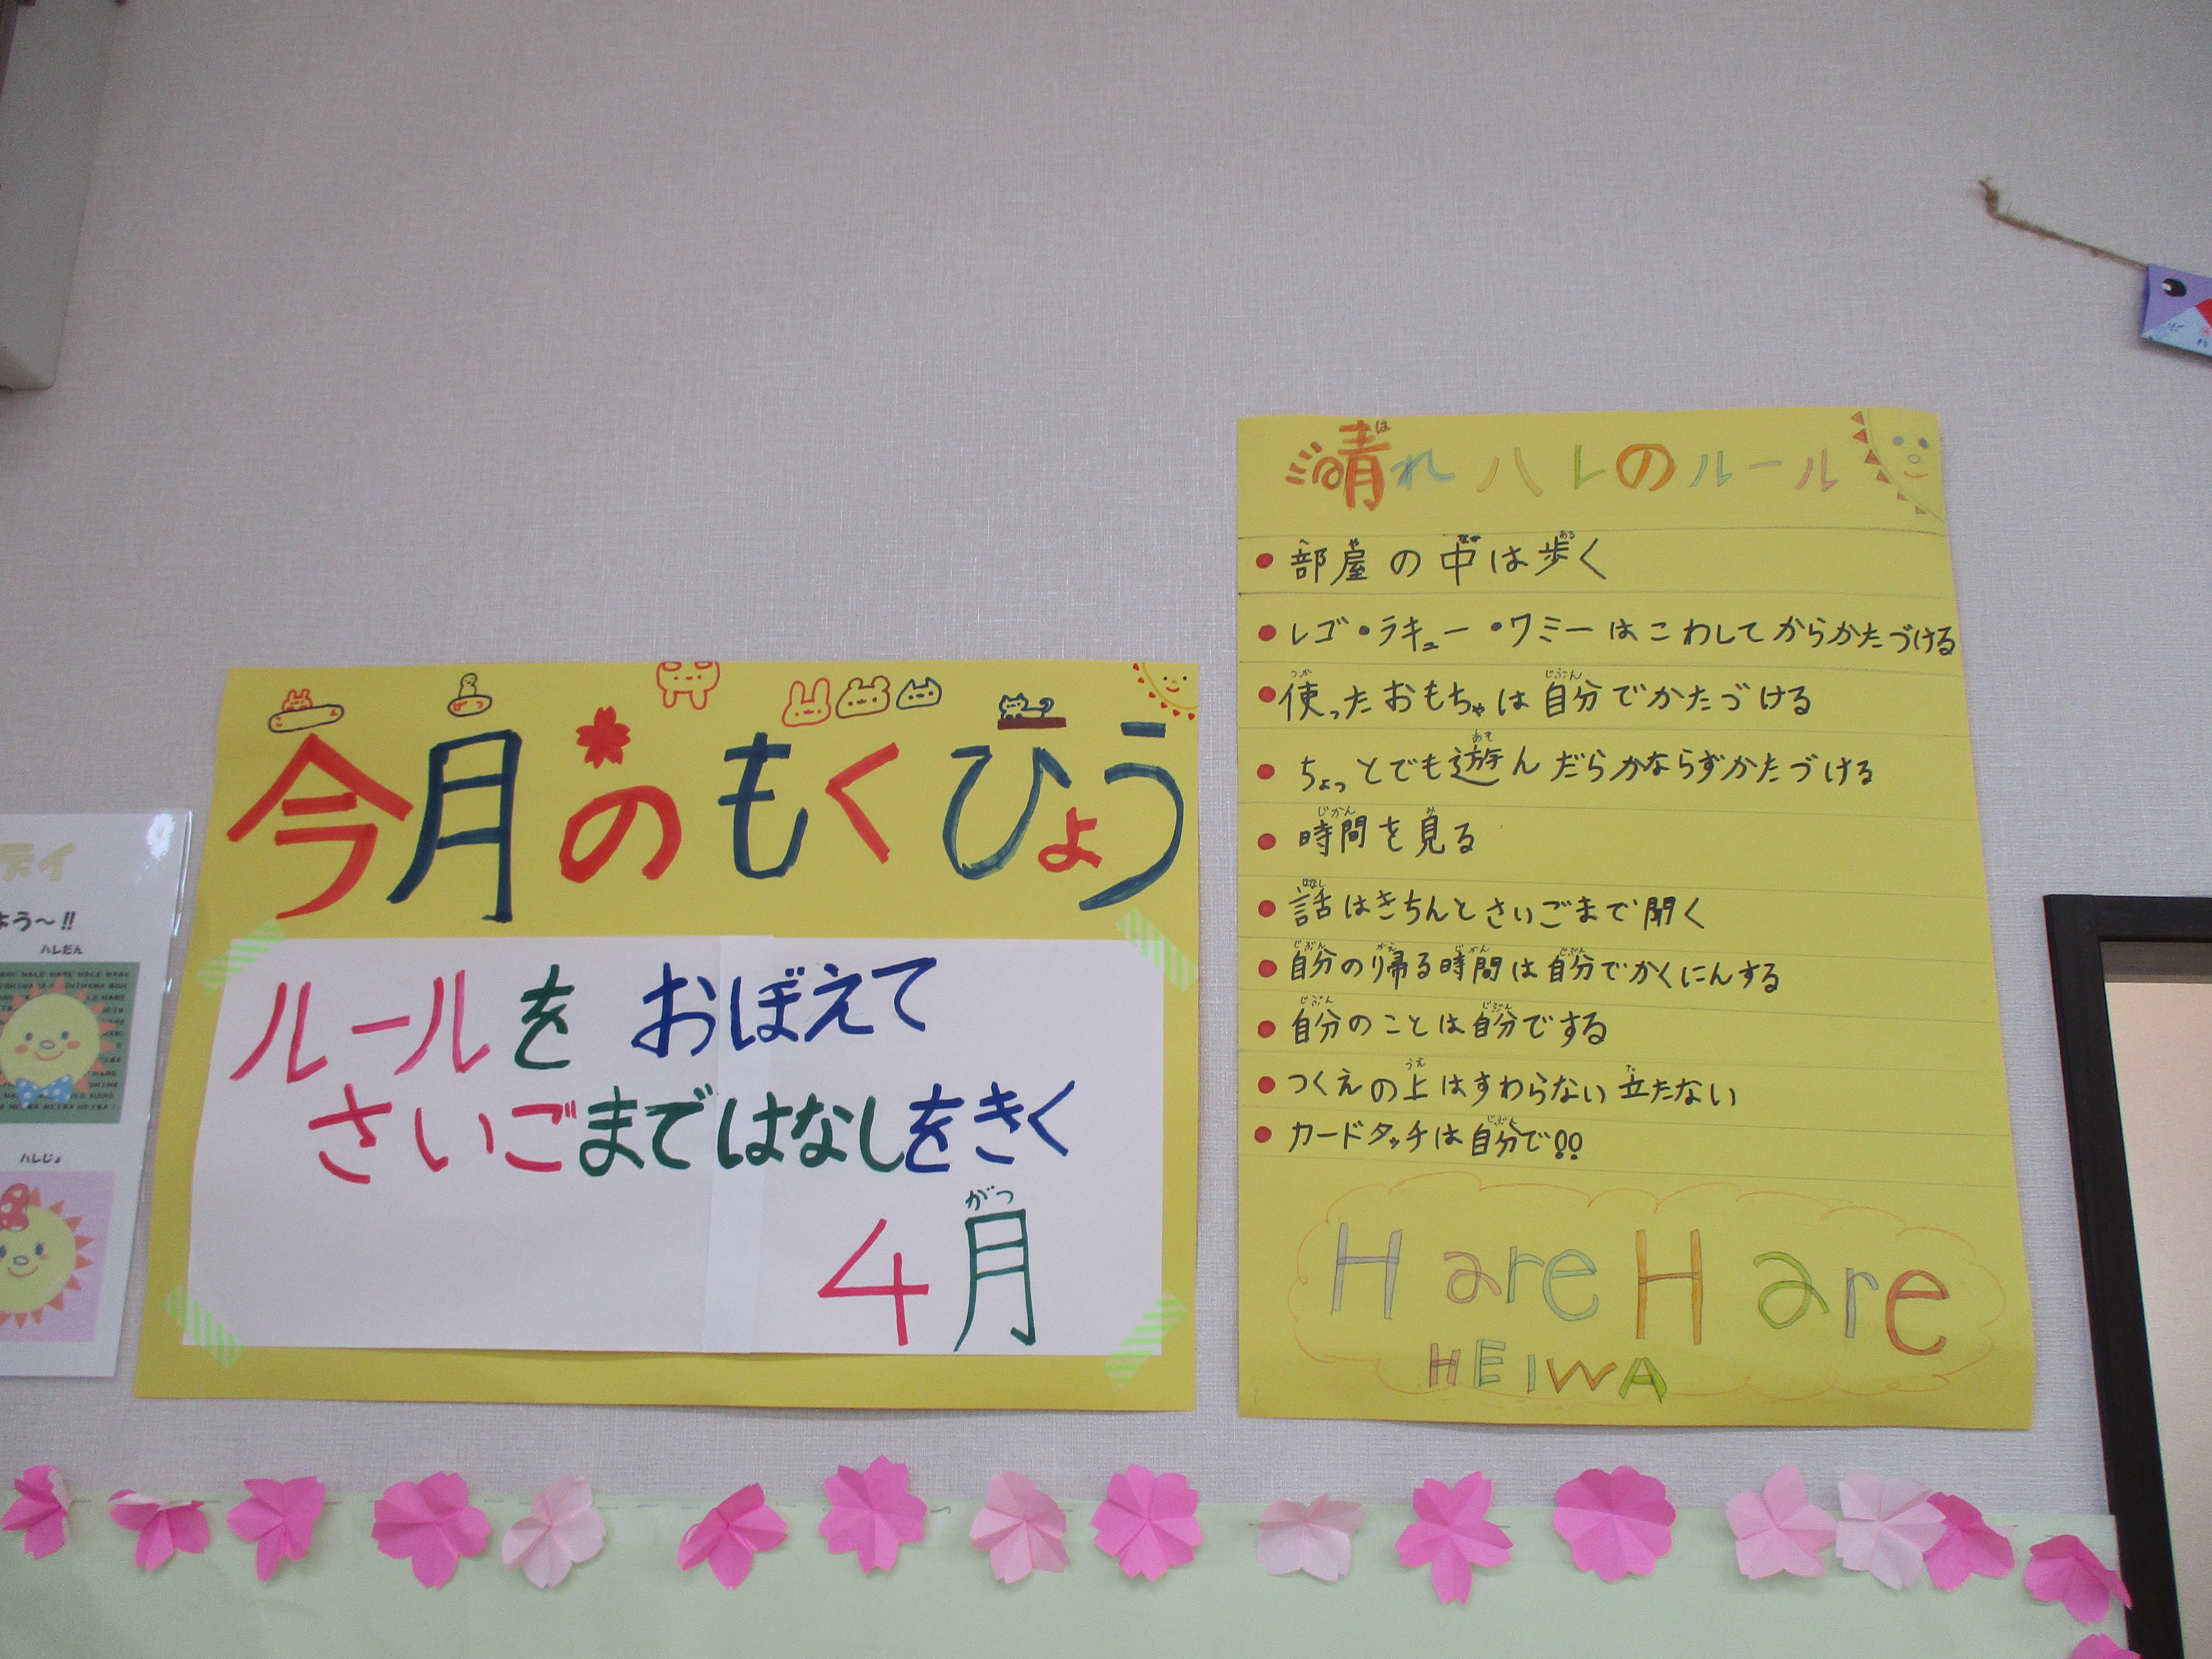 ディ
よう〜!!
ハレだん
ハレじょ
今月のもくひょう
ルールを おぼえて
さいごまではなしをきく
がつ
4月
は
晴れハレのルール
へ や なか ある
・部屋の中は歩く
・レゴ・ラキュー・ワミーはこわしてからかたづける
つか じぶん
・使ったおもちゃは自分でかたづける
あそ
・ちょっとでも遊んだらかならずかたづける
じかん み
・時間を見る
はなし
・話はきちんとさいごまで聞く
じぶん かえ じかん じぶん
・自分の帰る時間は自分でかくにんする
じぶん じぶん
・自分のことは自分でする
うえ た
・つくえの上はすわらない 立たない
じぶん
・カードタッチは自分で!!
HareHare
HEIWA